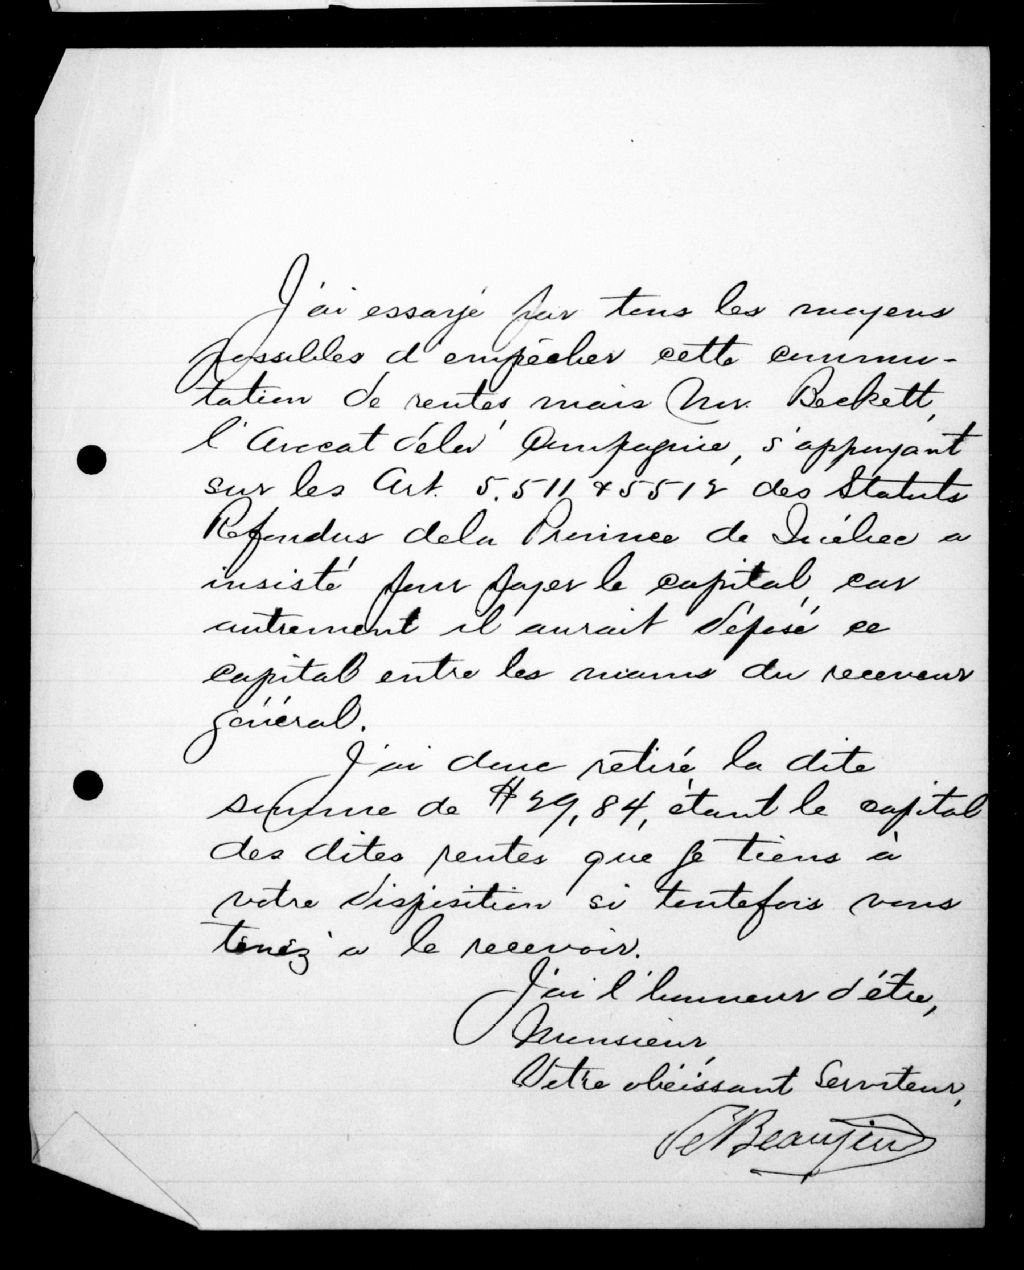 J'ai essayé par tous les moyens
possibles d'empêcher cette commu-
tation de rentes mais Mr. Beckett,
l'Avocat dela Compagnie, s'appuyant
sur les Art. 5.511 & 5512 des Statuts
Refondus dela Province de Québec a
insisté pour payer le capital, car
autrement il aurait déposé ce
capital entre les mains du receveur
général.
J'ai donc retiré la dite
somme de $29,84, étant le capital
des dites rentes que je tiens à
votre disposition si toutefois vous
tenez a le recevoir.
J'ai l'honneur d'être,
Monsieur,
Votre obéissant Serviteur,